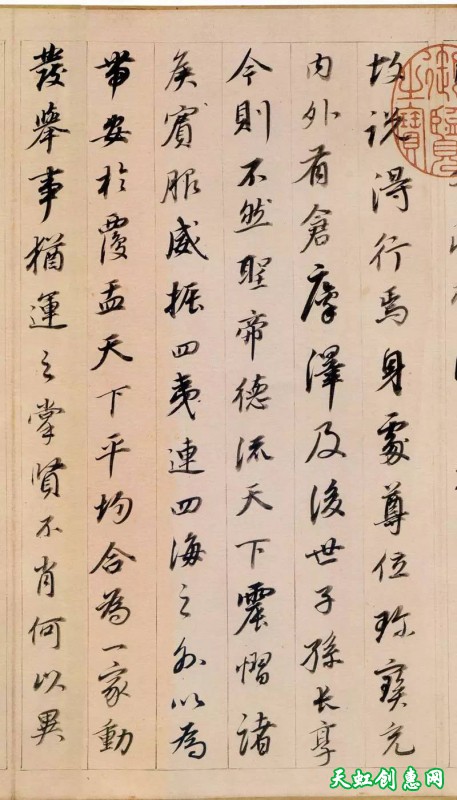 御覽之寶
故說得行焉身處尊位珎寳充
内外有倉廩澤及後世子孫長享
今則不然聖帝德流天下震慴諸
矦賓服威振四夷連四海之外以為
帶安於覆盂天下平均合為一家動
發舉事猶運之掌賢不肖何以異
天虹创惠网